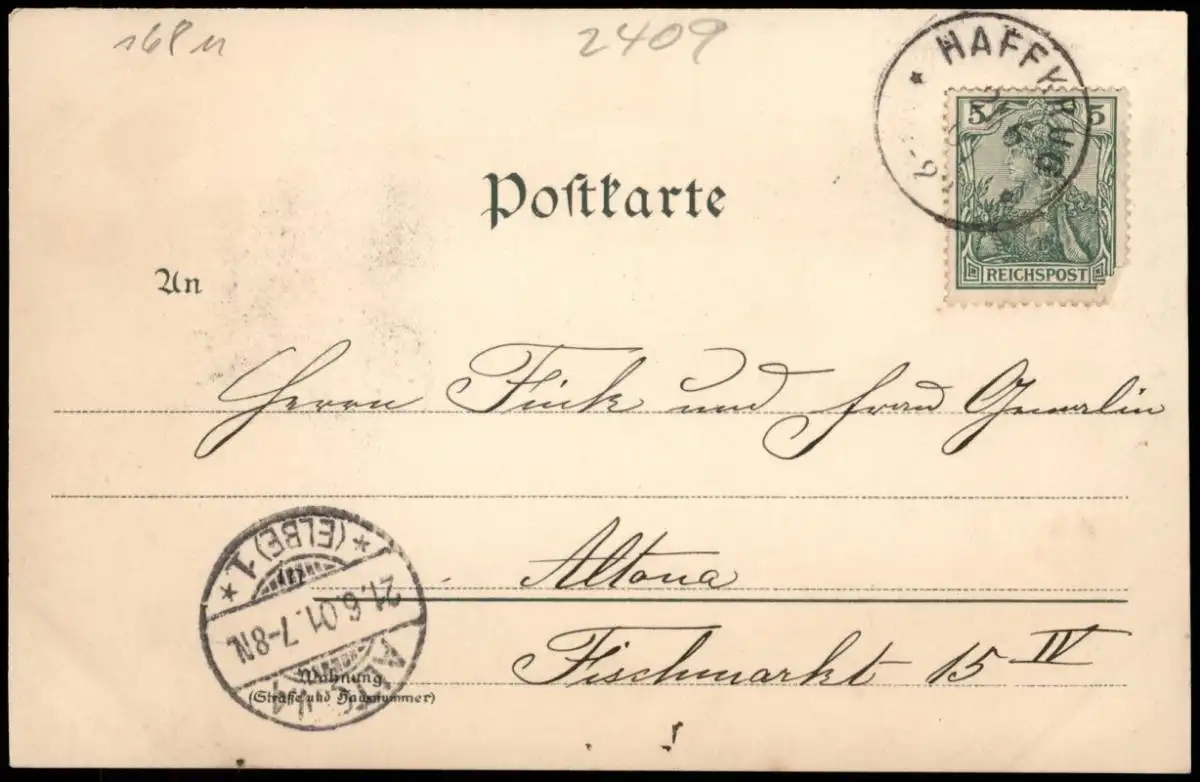 2409
HAFFKRUG
5 5
REICHSPOST
Postkarte
An
Herrn Fink und Frau Gemalin
Altona
Fischmarkt 15 IV
(ELBE) 1
21.6.01. 7-8N.
Wohnung
(Straße und Hausnummer)